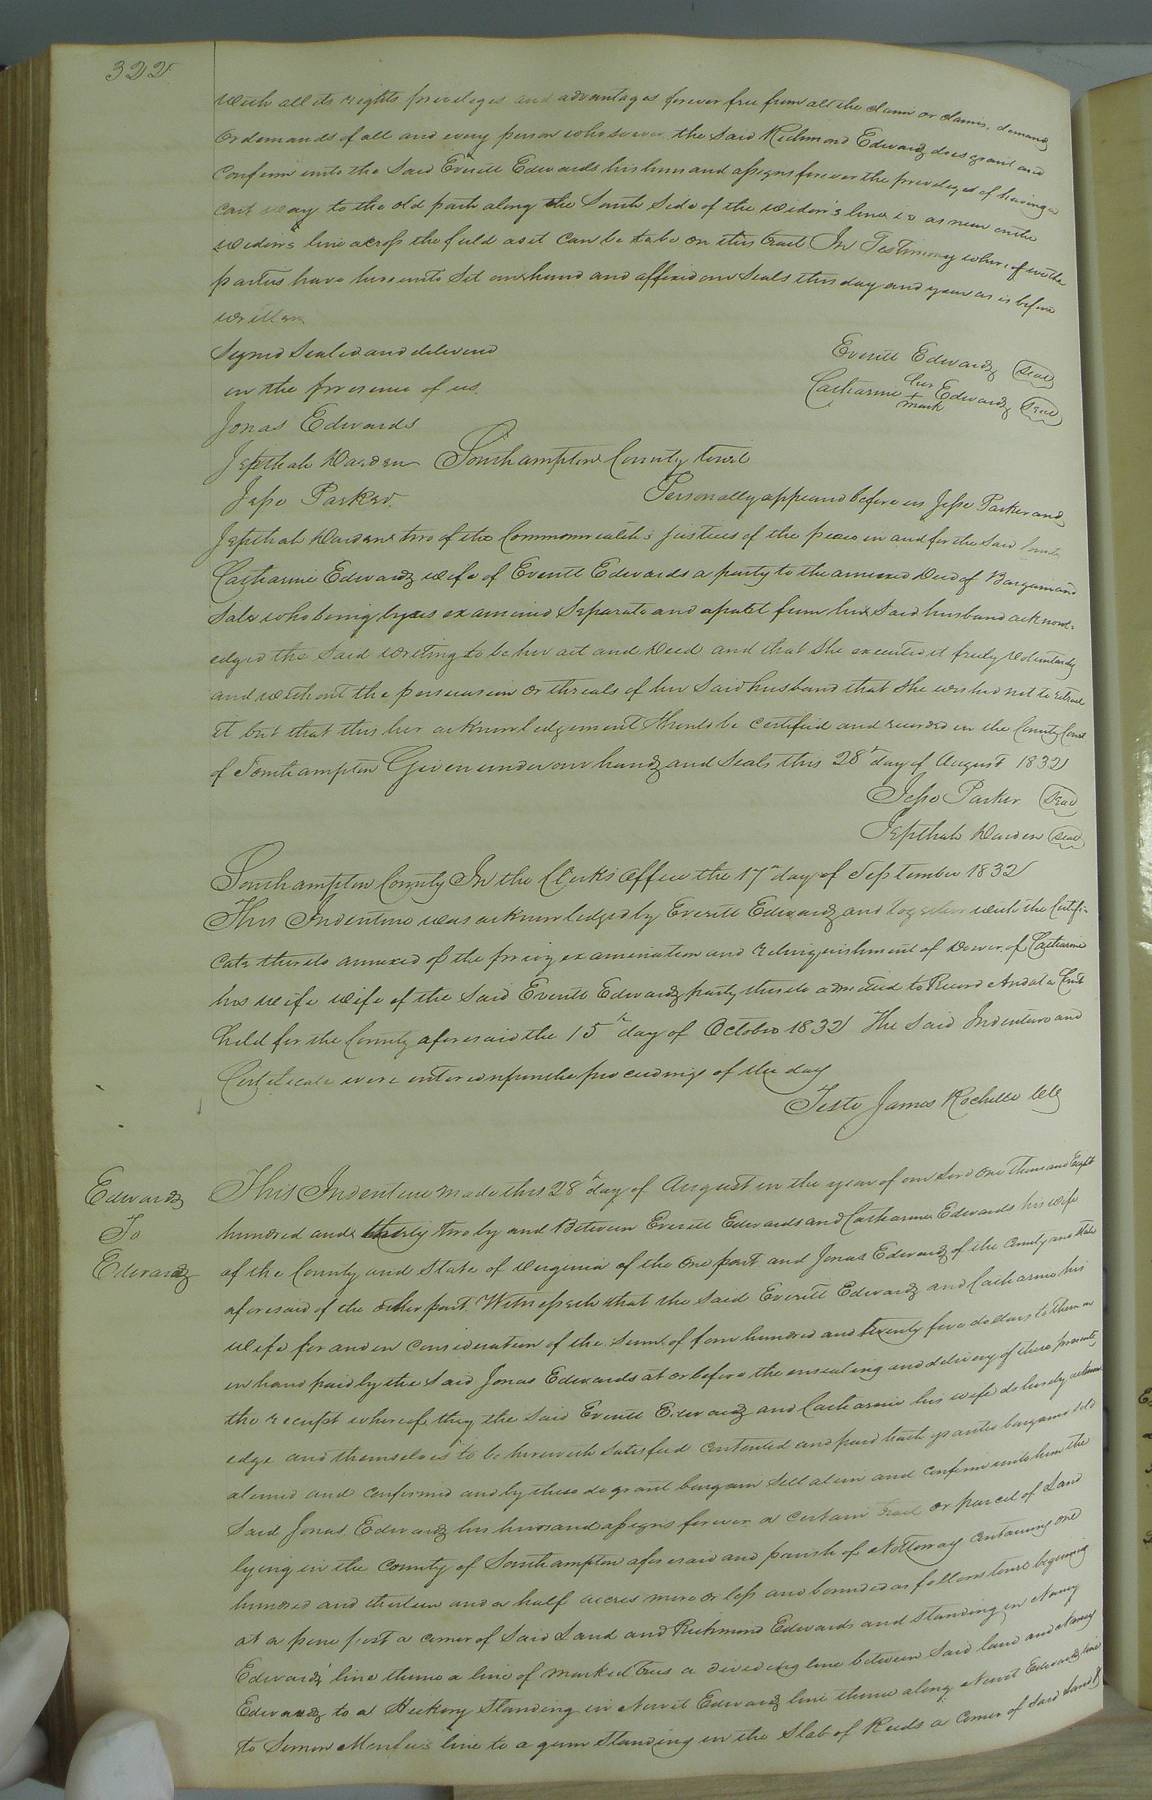 322
with all its rights priveleges and advantages forever free from all the claim or claims, demand
or demands of all and every person whosoever the said Richmond Edwards does grant and
confirm unto the said Everitt Edwards his heirs and assigns forever the priveleges of having a
cart way to the old path along the South side of the widow's line as near on the
widow's line across the field as it can be on this tract In Testimony whereof we the
parties have hereunto set our hand and affixed our seals this day and year as is before
written
Signed Sealed and delivered
in the presence of us.
Everitt Edwards Seal
Catharine her + mark Edwards Seal
Jonas Edwards
Jepthah Darden
Jesse Parker
Southampton County towit
Personally appeared before us Jesse Parker and
Jepthah Darden two of the Commonwealth's justices of the peace in and for the said
Catharine Edwards wife of Everitt Edwards a party to the annexed Deed of Bargain and
Sale who being by us examined separate and apart from her said husband acknowl-
edged the said writing to be her act and Deed and that she executed it freely voluntarily
and without the persuasion or threats of her said husband that she wished not to retract
it but that this her acknowledgement should be certified and recorded in the County Court
of Southampton Given under our hands and seals this 28th day of August 1832
Jesse Parker Seal
Jepthah Darden Seal
Southampton County In the Clerk's Office the 17th day of September 1832
This Indenture was acknowledged by Everitt Edwards and together with the Certifi-
cate thereto annexed of the privy examination and relinquishment of Dower of Catharine
his wife wife of the said Everitt Edwards party thereto admitted to Record And at a Court
held for the County aforesaid the 15th day of October 1832 The said Indenture and
Certificate were entered upon the proceedings of the day
Teste James Rochelle Clk
Edwards
To
Edwards
This Indenture made this 28th day of August in the year of our Lord one thousand Eight
hundred and thirty two by and Between Everitt Edwards and Catharine Edwards his wife
of the County and State of Virginia of the one part and Jonas Edwards of the County and State
aforesaid of the other part. Witnesseth that the said Everitt Edwards and Catharine his
wife for and in consideration of the sum of four hundred and twenty five dollars to them in
in hand paid by the said Jonas Edwards at or before the ensealing and delivery of these presents,
the receipt whereof they the said Everitt Edwards and Catharine his wife do hereby acknowl
edge and themselves to be herewith satisfied contented and paid hath granted bargained sold
aliened and confirmed and by these do grant bargain sell alien and confirm unto him the
said Jonas Edwards his heirs and assigns forever a certain tract or parcel of Land
lying in the County of Southampton aforesaid and parish of Nottoway containing one
hundred and thirteen and a half acres more or less and bounded as follows towit beginning
at a pine post a corner of said Land and Richmond Edwards and standing in Nancy
Edwards' line thence a line of marked trees a divideing line between said land and Nancy
Edwards to a Hickory standing in Newit Edwards line thence along Newit Edwards line
to Simon line to a gum standing in the Slab of Reeds a corner of said Land &